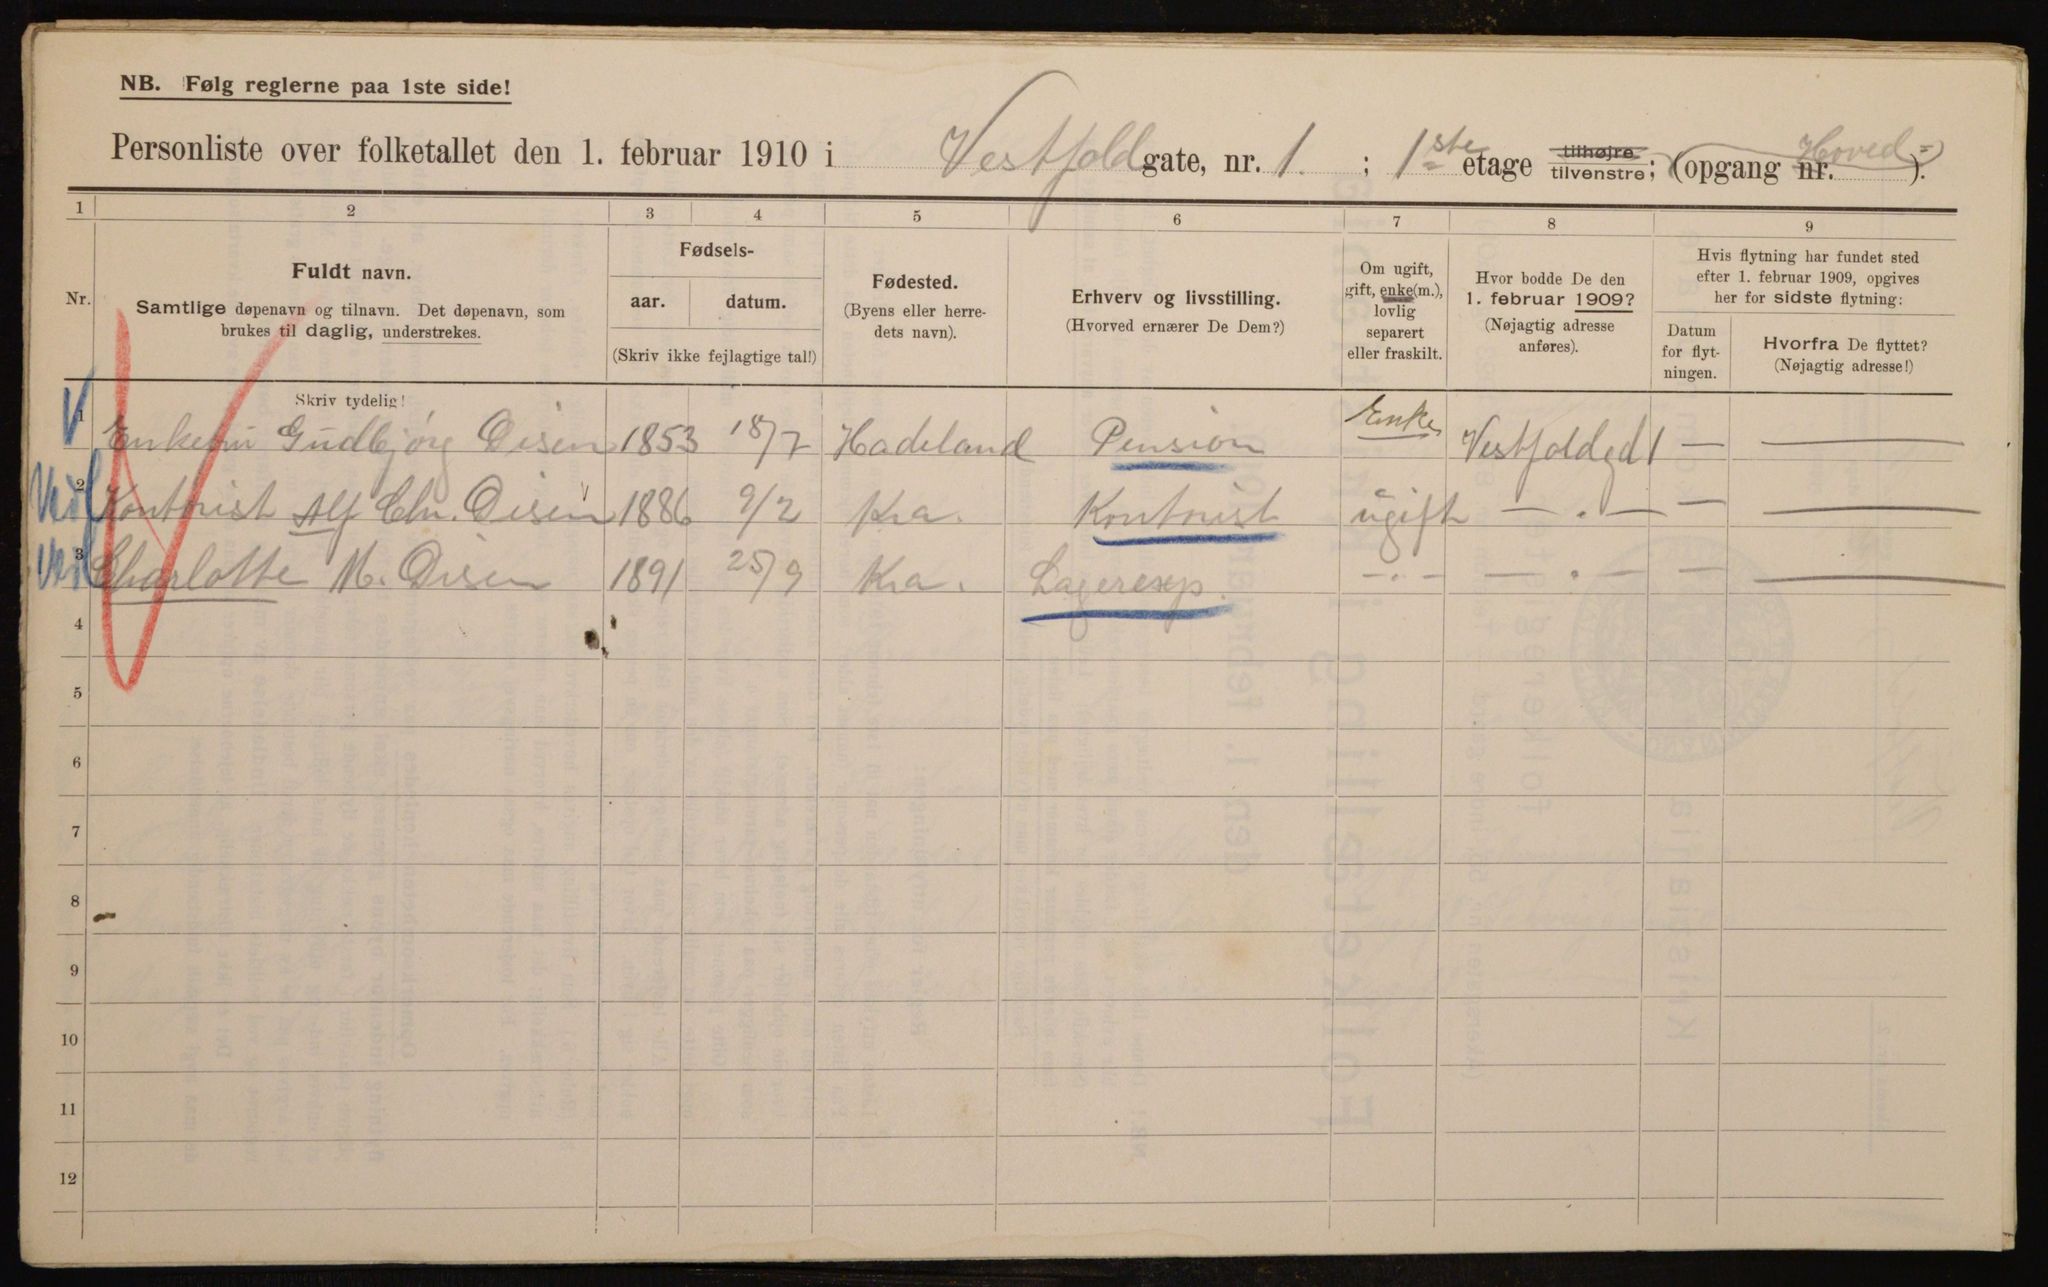 NB. Følg reglerne paa 1ste side!
Personliste over folketallet den 1. februar 1910 i Vestfold gate, nr. 1. ; 1ste etage tilhøjre tilvenstre; (opgang nr. Hoved=).
1 2 3 4 5 6 7 8 9
Nr.
Fuldt navn.
Samtlige døpenavn og tilnavn. Det døpenavn, som
brukes til daglig, understrekes.
Fødsels-
aar. datum.
(Skriv ikke fejlagtige tal!)
Fødested.
(Byens eller herre-
dets navn).
Erhverv og livsstilling.
(Hvorved ernærer De Dem?)
Om ugift,
gift, enke(m.),
lovlig
separert
eller fraskilt.
Hvor bodde De den
1. februar 1909?
(Nøjagtig adresse
anføres).
Hvis flytning har fundet sted
efter 1. februar 1909, opgives
her for sidste flytning:
Datum
for flyt-
ningen.
Hvorfra De flyttet?
(Nøjagtig adresse!)
Skriv tydelig!
1 Enkefru Gudbjørg Disen 1853 18/7 Hadeland Pension Enke Vestfoldgd 1 — —
2 Kontorist Alf Chr. Disen 1886 9/2 Kra. Kontorist ugift — . — — —
3 Charlotte M. Disen 1891 25/9 Kra. Lagereksp. — . — — . — — —
4
5
6
7
8
9
10
11
12